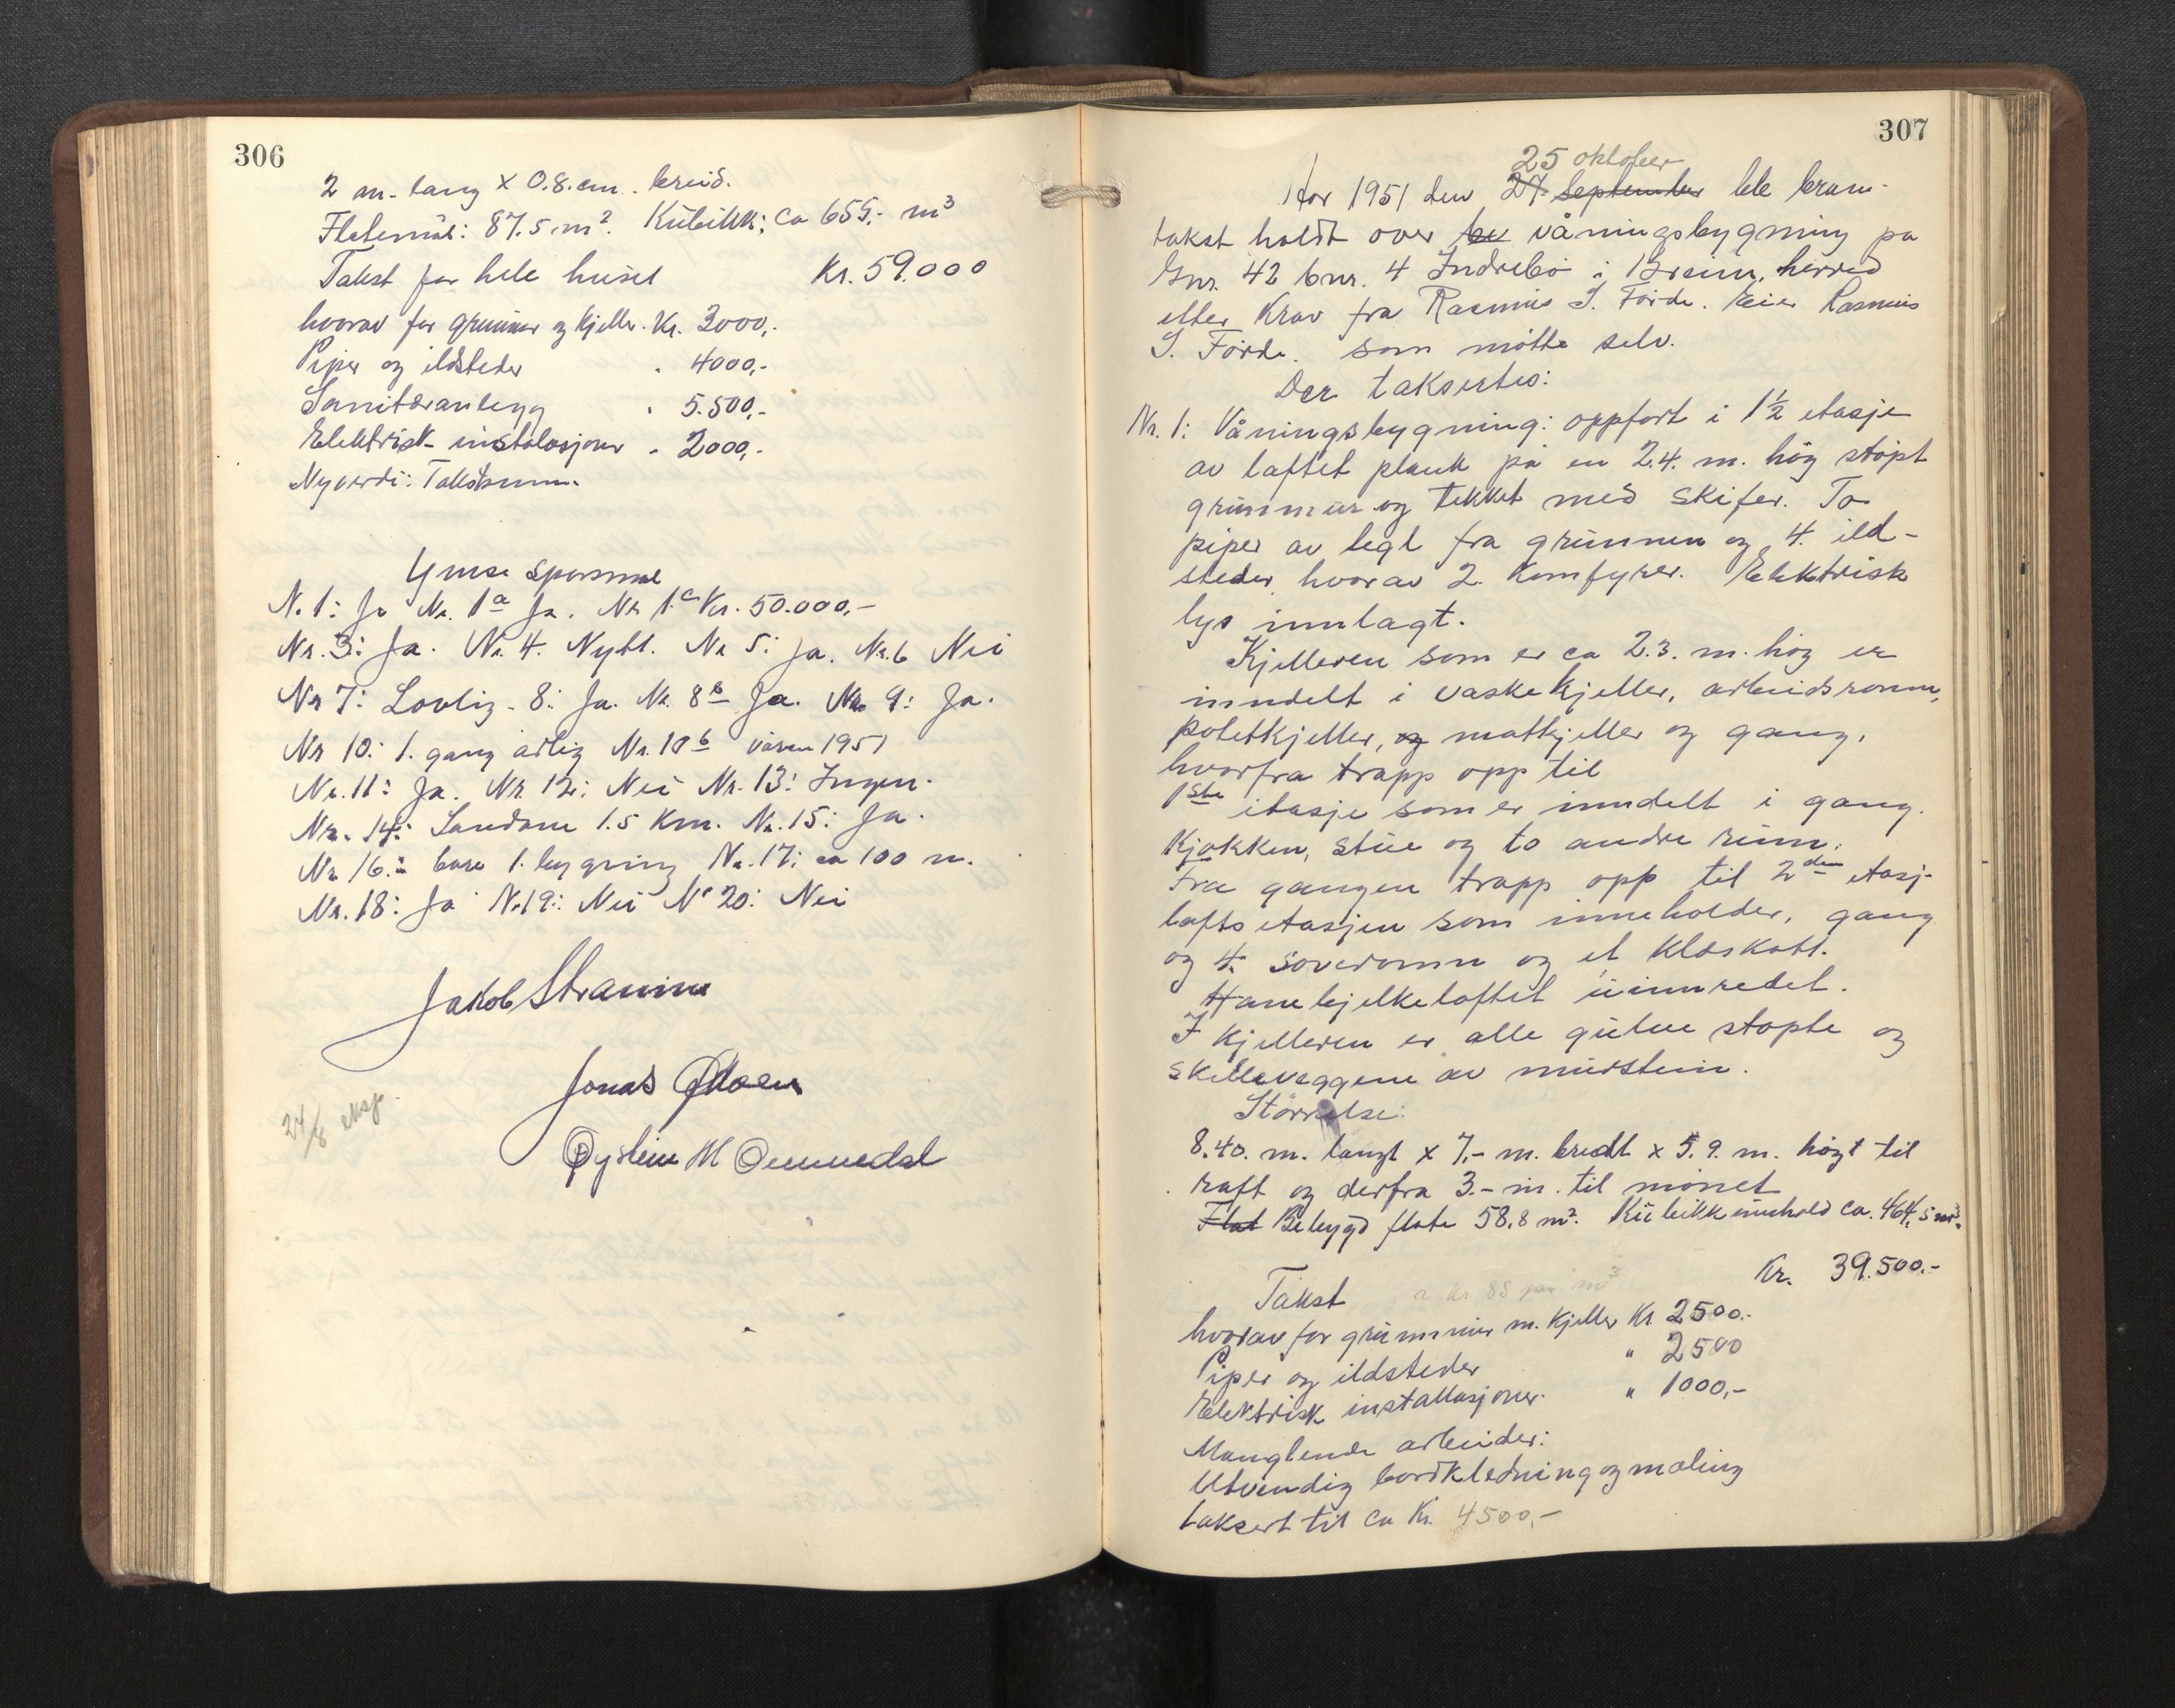 306
2 m. lang x 0.8. cm. breid.
Flatemål: 87.5 m². Kubikk: ca 655,- m³
Takst for hele huset Kr. 59.000
hvorav for grunnmur og kjeller. Kr. 3000,-
Piper og ildsteder " 4000,-
Sanitæranlegg " 5.500,-
Elektrisk installasjoner " 2000,-
Nyverdi: Takstsum.
Ymse spørsmål
N. 1: Ja Nr. 1a Ja. Nr 1.c Kr. 50.000,-
Nr. 3: Ja. Nr. 4. Nybl. Nr 5: Ja. Nr. 6 Nei
Nr 7: Lovlig. 8: Ja. Nr. 8b Ja. Nr. 9: Ja.
Nr 10: 1. gang årlig Nr. 10b våren 1951
Nr. 11: Ja. Nr. 12: Nei Nr. 13: Ingen.
Nr. 14: Sandane 1.5 Km. Nr. 15: Ja.
Nr 16.: bare 1. bygning Nr. 17: ca 100 m.
Nr. 18: Ja Nr 19: Nei Nr 20: Nei
Jakob
Jonas
24/8 eksp.
Øystein M
307
25 oktober
År 1951 den 27. September ble brann-
takst holdt over be våningsbygning på
Gnr. 42 bnr. 4 Indrebø i Breim, herred
etter Krav fra Rasmus I. Førde. Eier Rasmus
I. Førde. som møtte selv.
Der taksertes:
Nr. 1: Våningsbygning: oppført i 1½ etasje
av laftet plank på en 2.4. m. høg støpt
grunnmur og tekket med skifer. To
piper av tegl fra grunnen og 4. ild-
steder hvorav 2. Komfyrer. Elektrisk
lys innlagt.
Kjelleren som er ca 2.3. m. høg er
inndelt i vaskekjeller, arbeidsromm,
potetkjeller, og matkjeller og gang,
hvorfra trapp opp til
1ste etasje som er inndelt i gang.
Kjøkken, stue og to andre rum.
Fra gangen trapp opp til 2den etasj-
lofts etasjen som inneholder, gang
og 4. soveromm og et klæskott.
Hanebjelkeloftet uinnredet.
I Kjelleren er alle gulve støpte og
skilleveggene av murstein.
Størrelse:
8.40. m. langt x 7,- m. bredt x 5.9. m. høgt til
raft og derfra 3.- m. til mønet
Flat Bebygd flate 58.8 m². Kubikkinnhold ca. 464,5 m³.
Takst a kr 85 pr m³ Kr. 39.500.-
hvorav for grunnmur m. Kjeller Kr 2500.-
Piper og ildsteder " 2500
Elektrisk installasjoner. " 1000,-
Manglende arbeider:
Utvendig bordkledning og maling
taksert til ca Kr. 4500,-